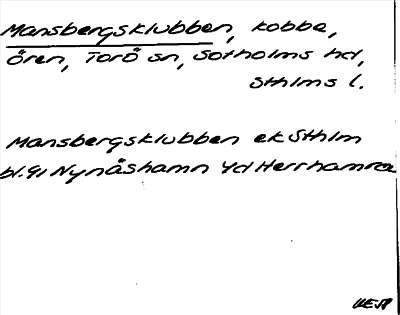 Mansbergsklubben, kobbe,
Ören, Torö sn, Sotholms hd,
Sthlms l.
Mansbergsklubben ek Sthlm
bl. 91 Nynäshamn Yd Herrhamra